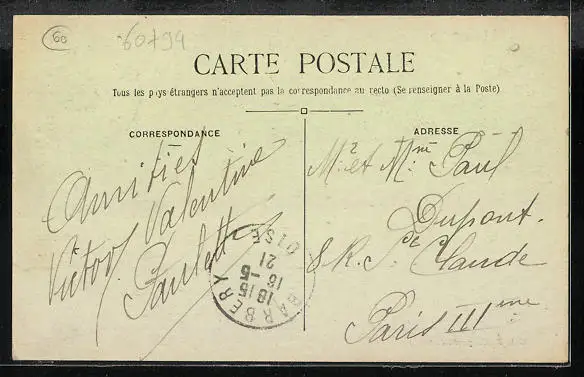 60
60794
CARTE POSTALE
Tous les pays étrangers n'acceptent pas la correspondance au recto (Se renseigner à la Poste)
CORRESPONDANCE
Amitiés
Victor Valentine
Paulette
ADRESSE
Mr et Mme Paul
Dupont.
8 R. Ste Claude
Paris IIIème
BARBERY
OISE
1815
16 -5
21